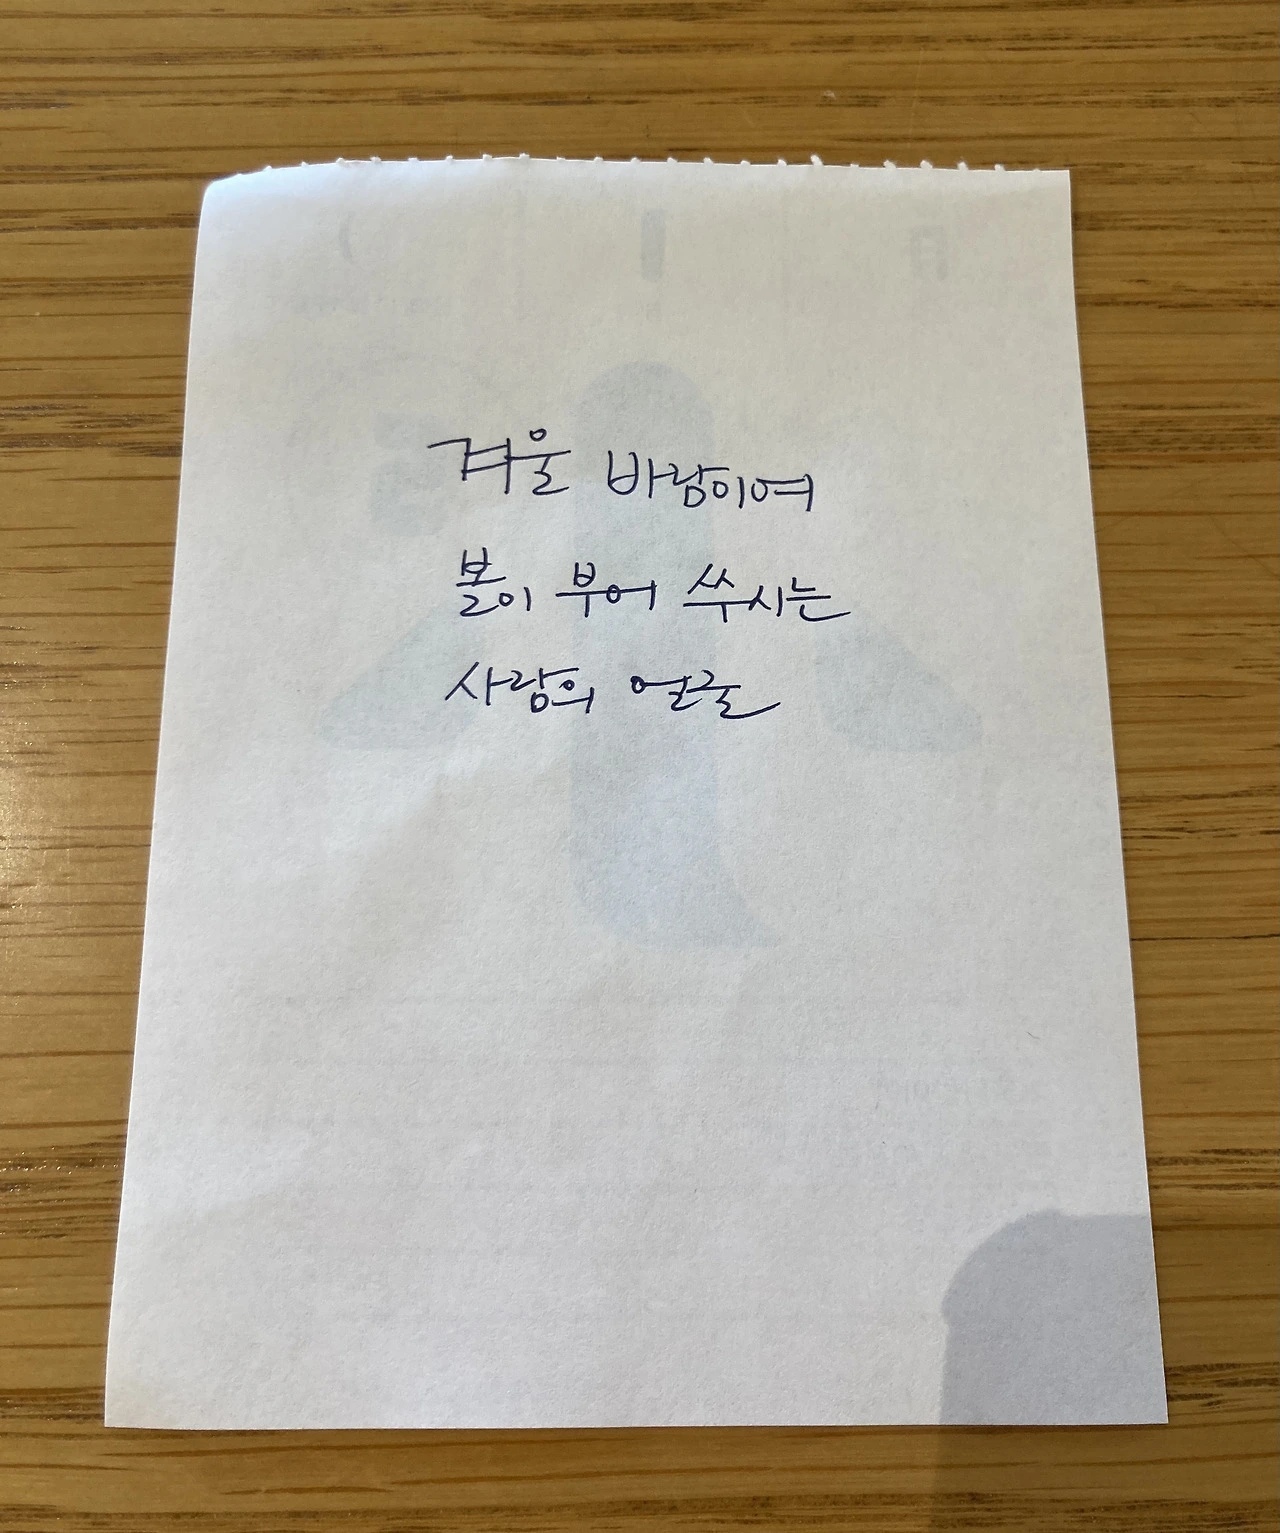 겨울 바람이여
볼이 부어 쑤시는
사람의 얼굴